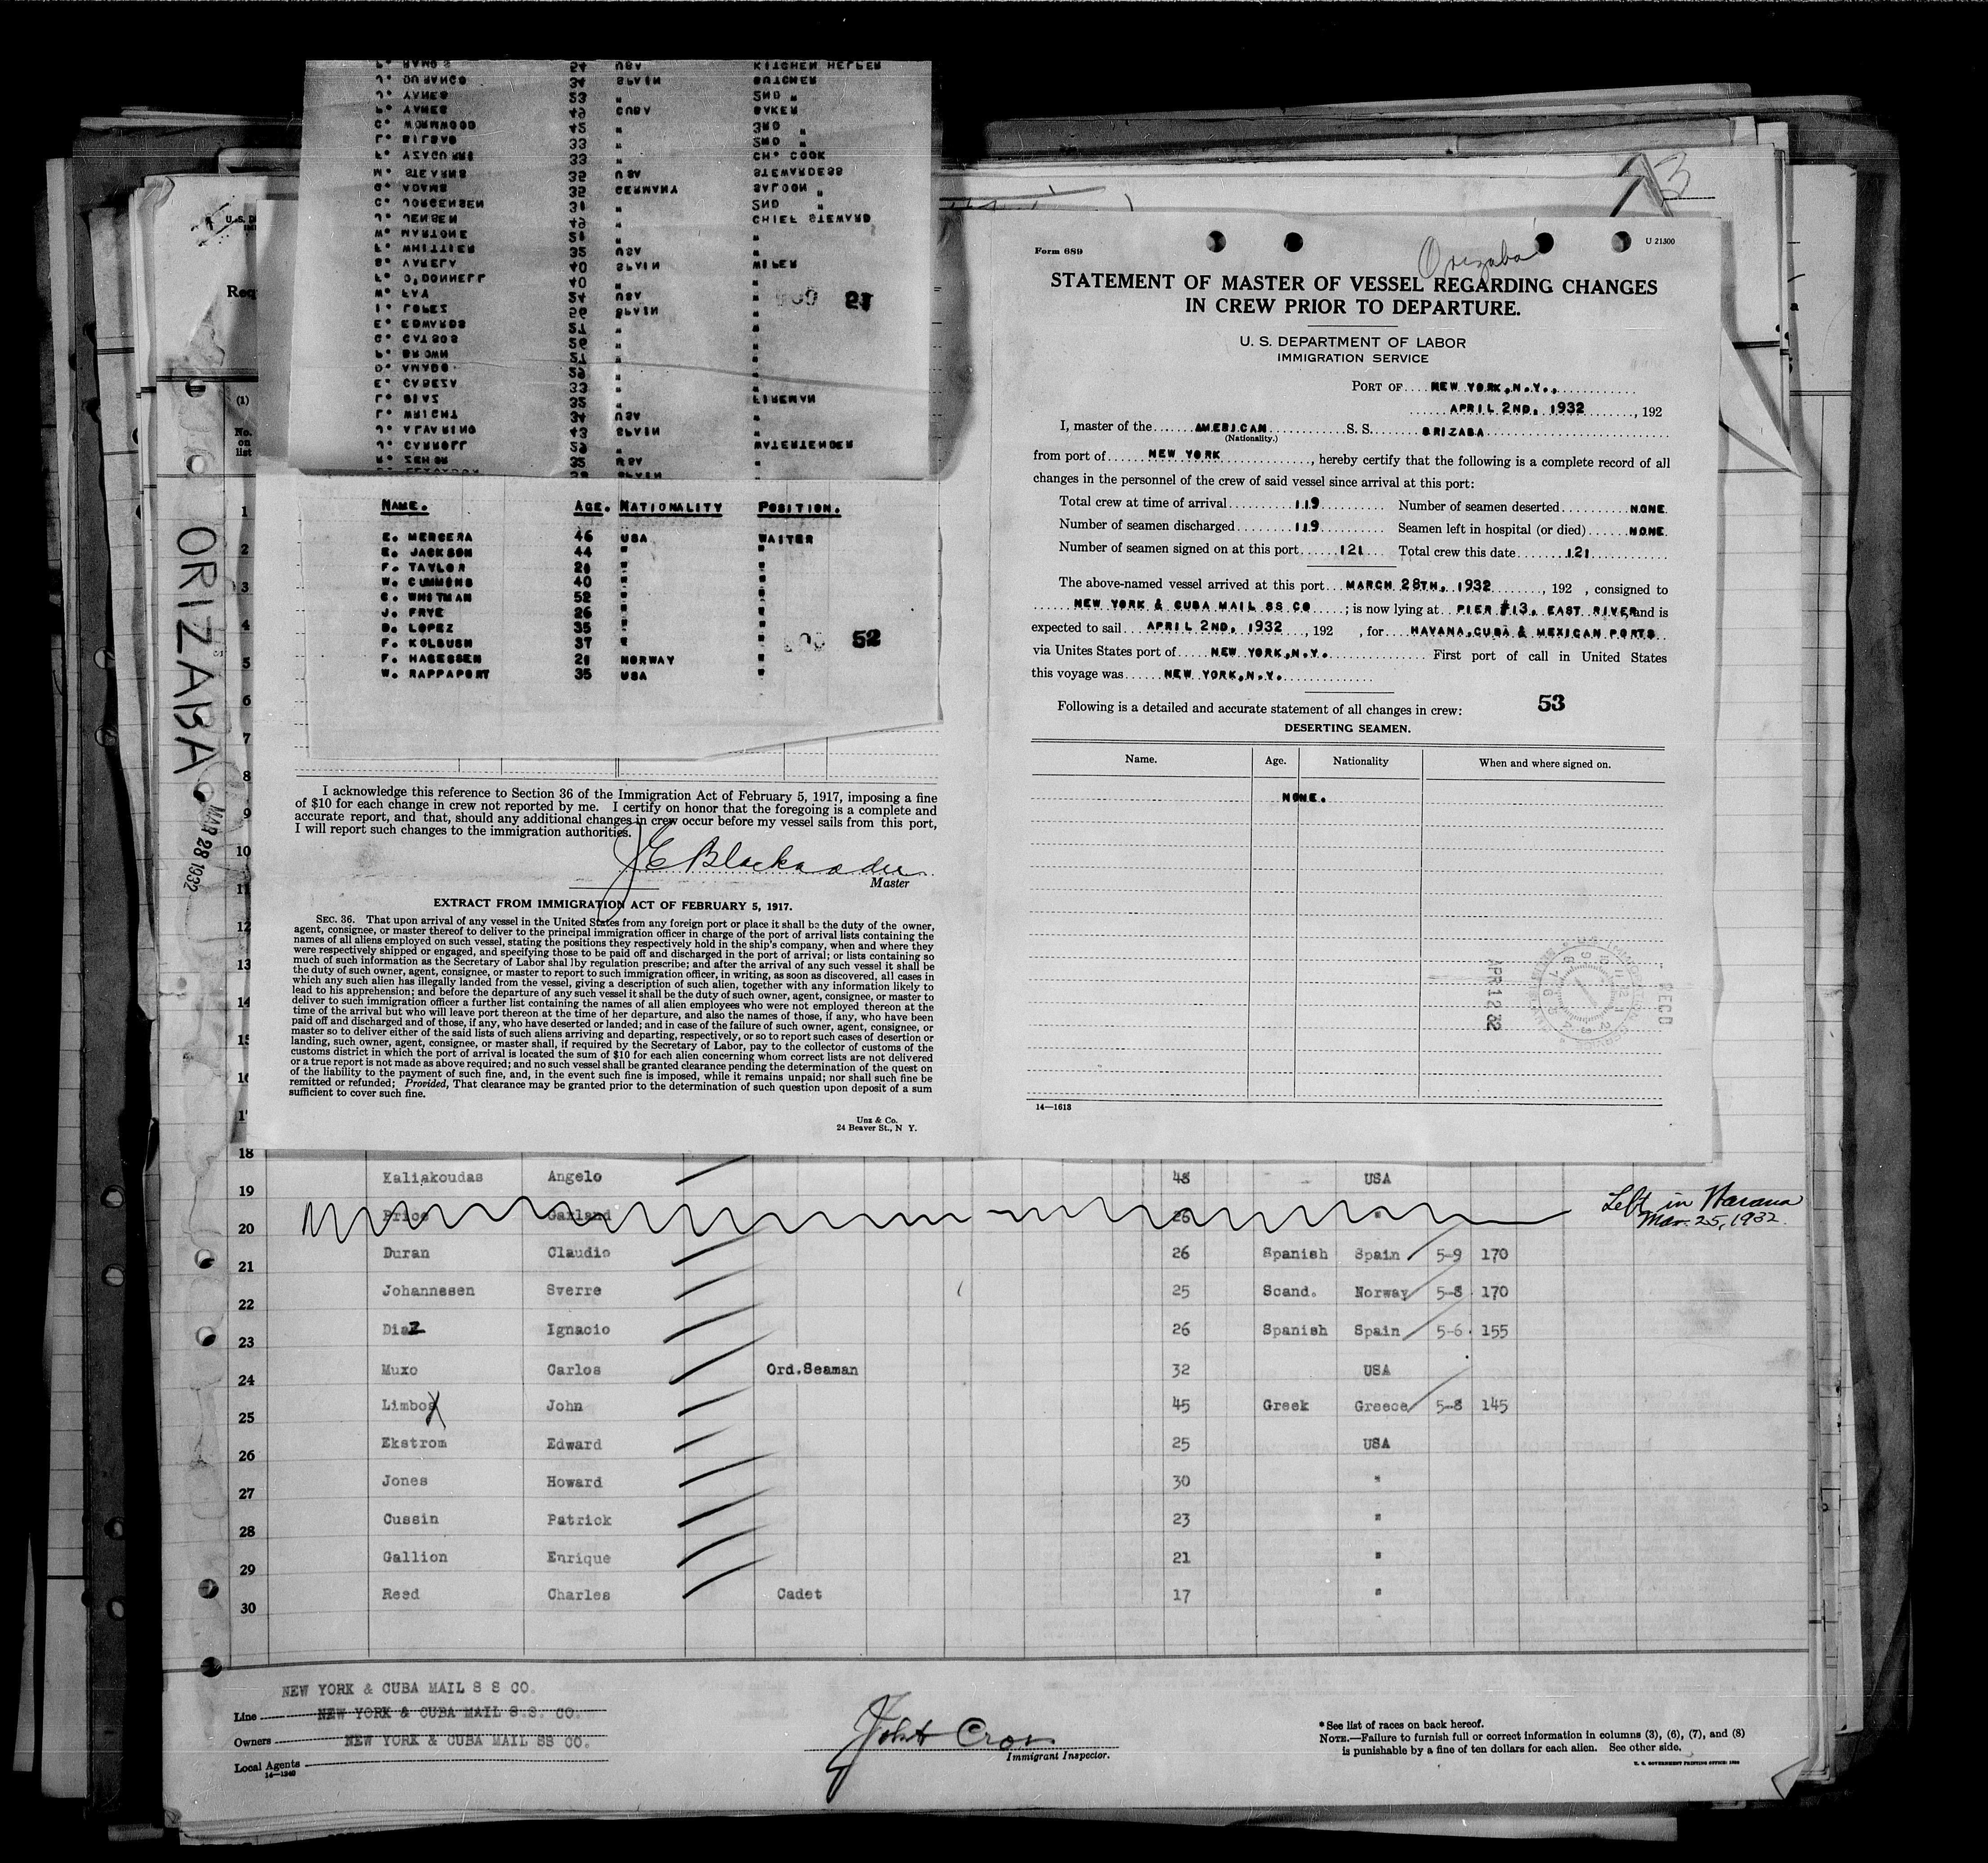 P. RAMOS 54 USA KITCHEN HELPER
J. DURANGO 34 SPAIN BUTCHER
J. YANES 23 " 2ND "
P. YANES 49 CUBA BAKER
C. WORMWOOD 42 " 3RD "
L. BILBAO 33 " 2ND "
F. YZAGUIRRE 33 " CH. COOK
M. STEARNS 32 USA STEWARDESS
G. ADAMS 32 GERMANY SALOON "
C. JORGENSEN 31 " 2ND "
J. JENSEN 49 " CHIEF STEWARD
W. MARTONE 21 " "
F. WHITTIER 32 USA "
B. VARELA 40 SPAIN WIPER
F. O'DONNELL 40 " "
M. EVA 24 USA "
I. LOPEZ 56 SPAIN "
E. EDWARDS 27 " "
C. CATSOS 26 " "
P. BROWN 27 " "
D. AMADO 29 " "
E. CABEZA 33 " "
L. DIAZ 32 " FIREMAN
L. WRIGHT 34 USA "
J. ALVARINO 43 SPAIN "
J. CARROLL 29 " WATERTENDER
R. ZEHOR 35 USA "
51
NAME. AGE. NATIONALITY POSITION.
E. MERCERA 46 USA WAITER
E. JACKSON 44 " "
F. TAYLOR 21 " "
W. CUMMONS 40 " "
C. WHITMAN 52 " "
J. FRYE 26 " "
D. LOPEZ 35 " "
F. KOLBUSH 37 " "
52
F. HAGESSEN 21 NORWAY "
W. RAPPAPORT 35 USA "
I acknowledge this reference to Section 36 of the Immigration Act of February 5, 1917, imposing a fine
of $10 for each change in crew not reported by me. I certify on honor that the foregoing is a complete and
accurate report, and that, should any additional changes in crew occur before my vessel sails from this port,
I will report such changes to the immigration authorities.
J E Blackadder
Master
EXTRACT FROM IMMIGRATION ACT OF FEBRUARY 5, 1917.
SEC. 36. That upon arrival of any vessel in the United States from any foreign port or place it shall be the duty of the owner,
agent, consignee, or master thereof to deliver to the principal immigration officer in charge of the port of arrival lists containing the
names of all aliens employed on such vessel, stating the positions they respectively hold in the ship's company, when and where they
were respectively shipped or engaged, and specifying those to be paid off and discharged in the port of arrival; or lists containing so
much of such information as the Secretary of Labor shal lby regulation prescribe; and after the arrival of any such vessel it shall be
the duty of such owner, agent, consignee, or master to report to such immigration officer, in writing, as soon as discovered, all cases in
which any such alien has illegally landed from the vessel, giving a description of such alien, together with any information likely to
lead to his apprehension; and before the departure of any such vessel it shall be the duty of such owner, agent, consignee, or master to
deliver to such immigration officer a further list containing the names of all alien employees who were not employed thereon at the
time of the arrival but who will leave port thereon at the time of her departure, and also the names of those, if any, who have been
paid off and discharged and of those, if any, who have deserted or landed; and in case of the failure of such owner, agent, consignee, or
master so to deliver either of the said lists of such aliens arriving and departing, respectively, or so to report such cases of desertion or
landing, such owner, agent, consignee, or master shall, if required by the Secretary of Labor, pay to the collector of customs of the
customs district in which the port of arrival is located the sum of $10 for each alien concerning whom correct lists are not delivered
or a true report is not made as above required; and no such vessel shall be granted clearance pending the determination of the quest on
of the liability to the payment of such fine, and, in the event such fine is imposed, while it remains unpaid; nor shall such fine be
remitted or refunded; Provided, That clearance may be granted prior to the determination of such question upon deposit of a sum
sufficient to cover such fine.
Unz & Co.
24 Beaver St., N Y.
Form 689
Orizaba
U 21300
STATEMENT OF MASTER OF VESSEL REGARDING CHANGES
IN CREW PRIOR TO DEPARTURE.
U. S. DEPARTMENT OF LABOR
IMMIGRATION SERVICE
PORT OF NEW YORK, N.Y.,
APRIL 2ND, 1932, 192
I, master of the AMERICAN S. S. ORIZABA
(Nationality.)
from port of NEW YORK, hereby certify that the following is a complete record of all
changes in the personnel of the crew of said vessel since arrival at this port:
Total crew at time of arrival 119 Number of seamen deserted NONE
Number of seamen discharged 119 Seamen left in hospital (or died) NONE.
Number of seamen signed on at this port 121 Total crew this date 121
The above-named vessel arrived at this port MARCH 28TH, 1932, 192 , consigned to
NEW YORK & CUBA MAIL SS CO ; is now lying at PIER #13, EAST RIVER, and is
expected to sail APRIL 2ND, 1932, 192 , for HAVANA, CUBA & MEXICAN PORTS
via Unites States port of NEW YORK, N.Y. First port of call in United States
this voyage was NEW YORK, N.Y.
53
Following is a detailed and accurate statement of all changes in crew:
DESERTING SEAMEN.
Name. Age. Nationality When and where signed on.
NONE.
RECD
APR 12 32
14—1613
ORIZABA
MAR 28 1932
(1)
No.
on
list
1
2
3
4
5
6
7
8
9
10
11
12
13
14
15
18
Kaliakoudas Angelo 48 USA
19
Price Garland 26 "
Left in Havana
Mar. 25, 1932.
20
Duran Claudio 26 Spanish Spain 5-9 170
21
Johannesen Sverre 25 Scand. Norway 5-8 170
22
Diaz Ignacio 26 Spanish Spain 5-6 155
23
Muxo Carlos Ord.Seaman 32 USA
24
Limbos John 45 Greek Greece 5-8 145
25
Ekstrom Edward 25 USA
26
Jones Howard 30 "
27
Cussin Patrick 23 "
28
Gallion Enrique 21 "
29
Reed Charles Cadet 17 "
30
NEW YORK & CUBA MAIL S S CO.
Line NEW YORK & CUBA MAIL S.S. CO.
Owners NEW YORK & CUBA MAIL SS CO.
Local Agents
14—1240
John Cron
Immigrant Inspector.
*See list of races on back hereof.
NOTE.—Failure to furnish full or correct information in columns (3), (6), (7), and (8)
is punishable by a fine of ten dollars for each alien. See other side.